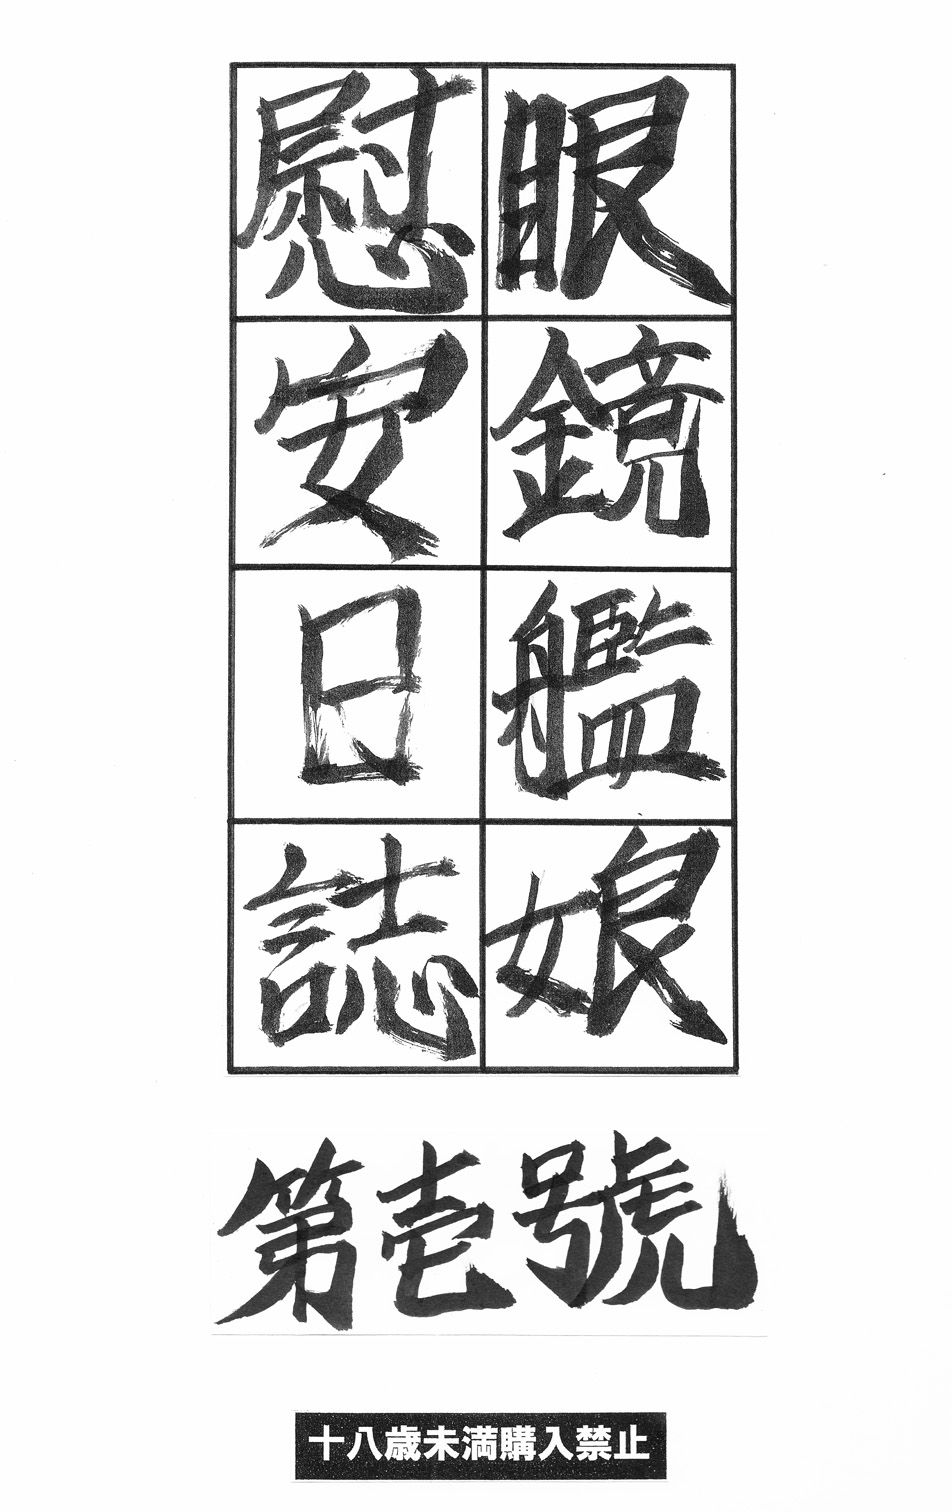 眼鏡艦娘
慰安日誌
第壱號
十八歳未満購入禁止